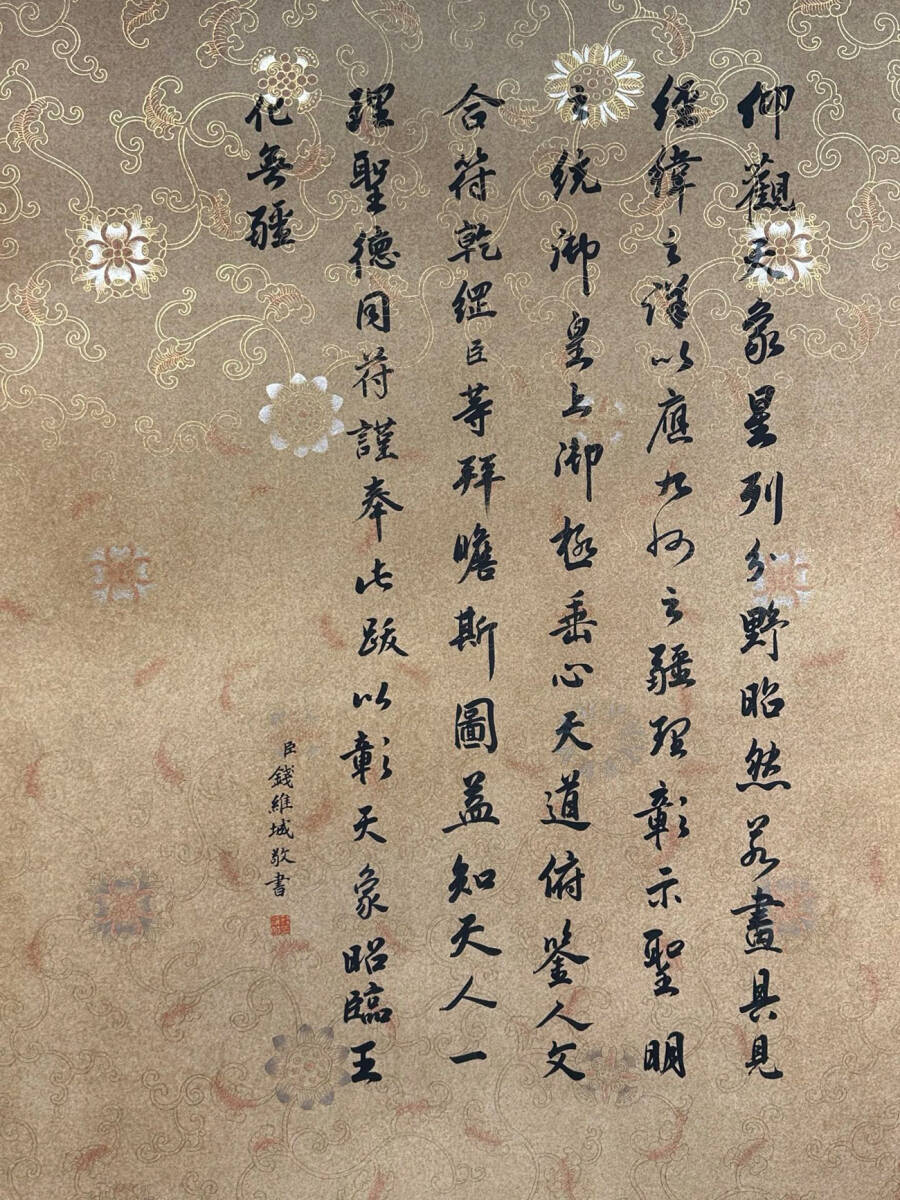 仰觀天象星列分野昭然若畫具見
經緯之詳以應九州之疆理彰示聖明
之統御皇上御極垂心天道俯鑒人文
合符乾綱臣等拜瞻斯圖益知天人一
理聖德同符謹奉此跋以彰天象昭臨王
化無疆
臣錢維城敬書